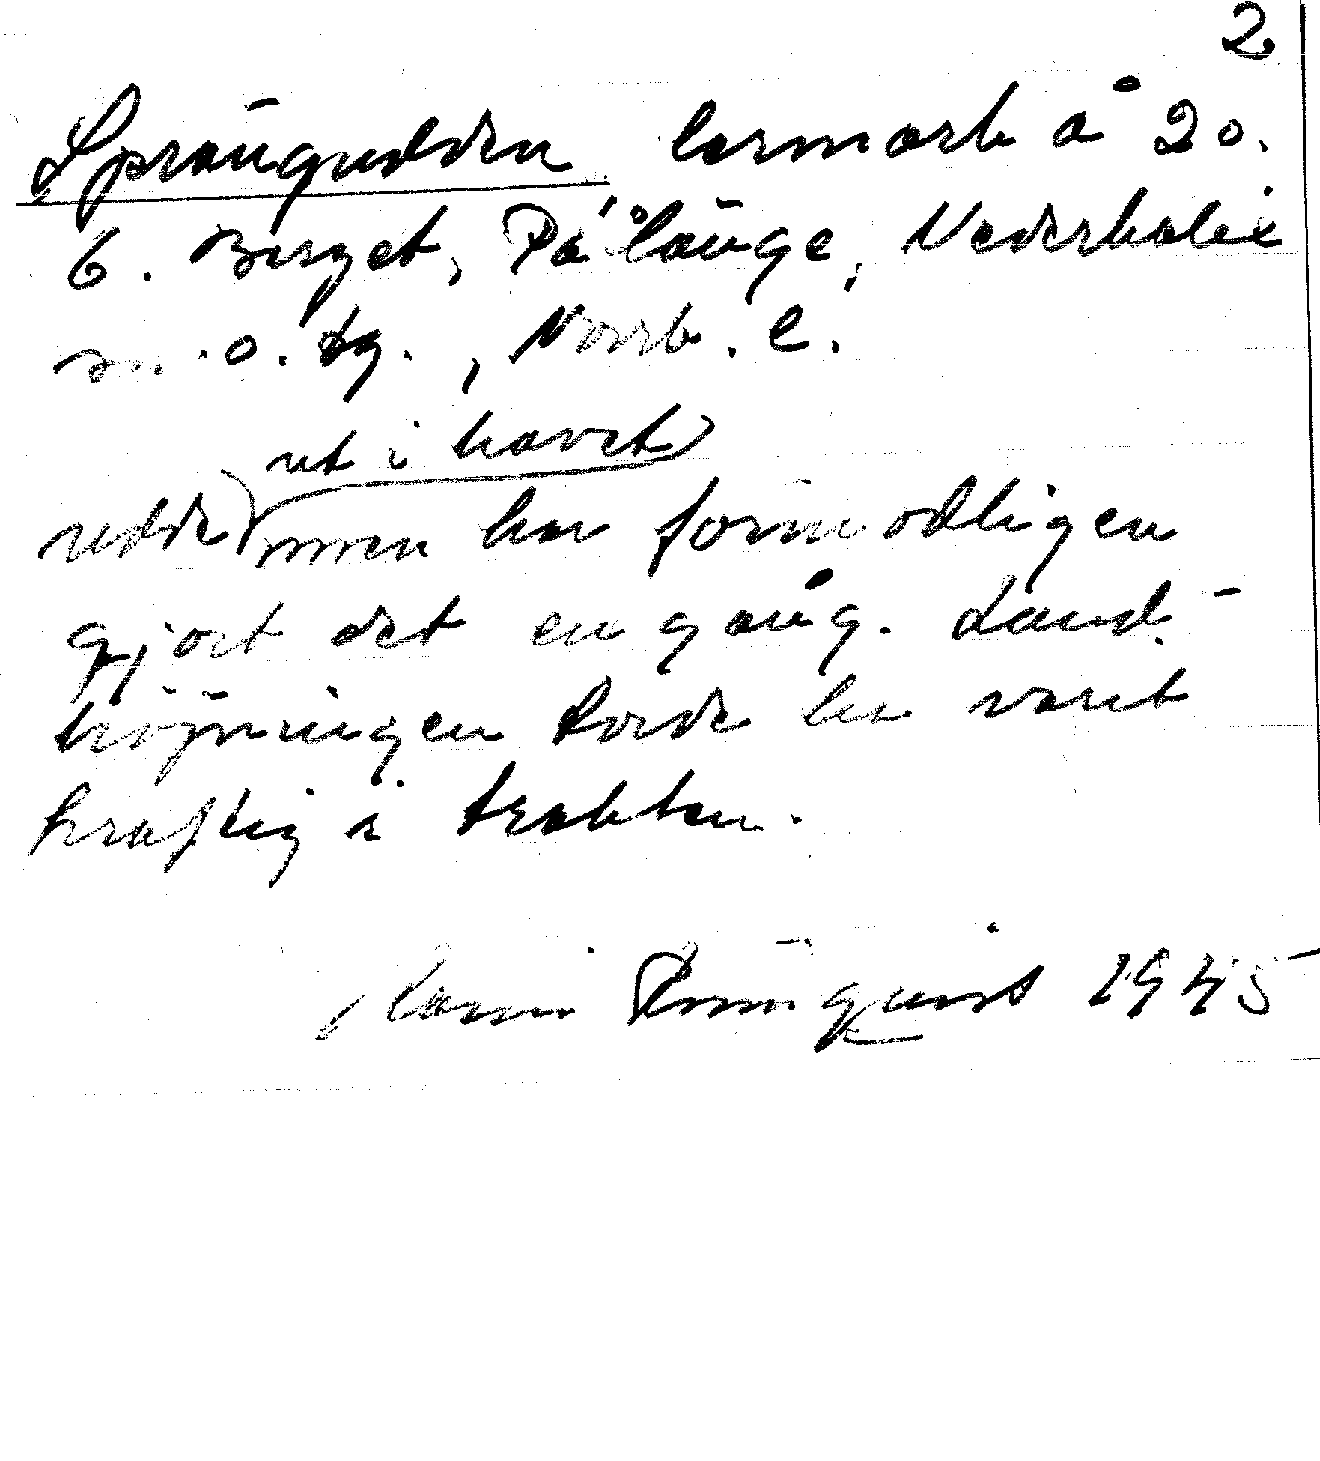 2
Språngudden, lermark å 20.
6. Berget, Pålänge, Nederkalix
m. o. tg., Norrb. l.
ut i havet
udde men har förmodligen
gjort det en gång. Land-
höjningen torde ha varit
kraftig i trakten.
Rönnquist 1945